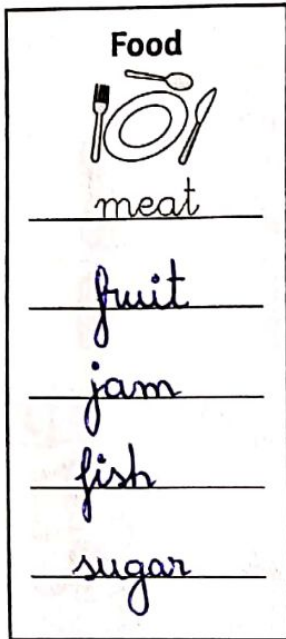 Food
meat
fruit
jam
fish
sugar